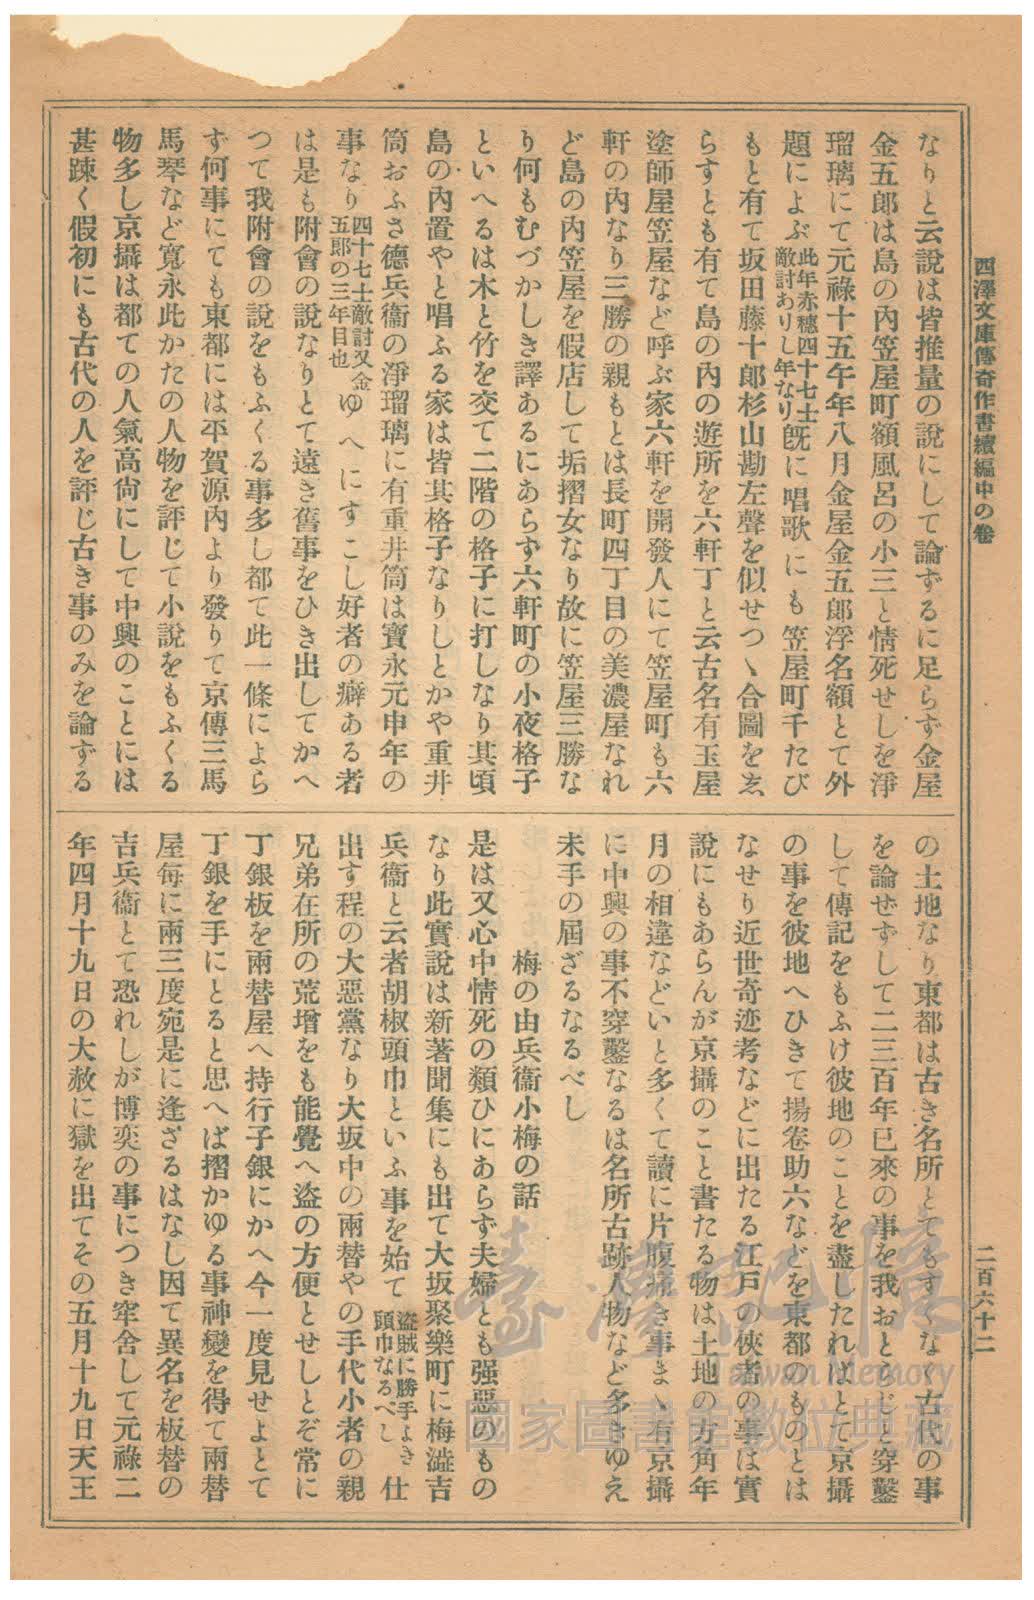 西澤文庫傳奇作書續編中の卷
二百六十二
なりと云說は皆推量の說にして論ずるに足らず金屋
金五郎は島の內笠屋町額風呂の小三と情死せしを淨
瑠璃にて元祿十五午年八月金屋金五郎浮名額とて外
題によぶ此年赤穗四十七士敵討ありし年なり旣に唱歌にも笠屋町千たび
もと有て坂田藤十郎杉山勘左聲を似せつゝ合圖をゑ
らすとも有て島の內の遊所を六軒丁と云古名有玉屋
塗師屋笠屋など呼ぶ家六軒を開發人にて笠屋町も六
軒の內なり三勝の親もとは長町四丁目の美濃屋なれ
ど島の內笠屋を假店して垢摺女なり故に笠屋三勝な
り何もむづかしき譯あるにあらず六軒町の小夜格子
といへるは木と竹を交て二階の格子に打しなり其頃
島の內置やと唱ふる家は皆其格子なりしとかや重井
筒おふさ德兵衞の淨瑠璃に有重井筒は寶永元申年の
事なり四十七士敵討又金五郎の三年目也ゆへにすこし好者の癖ある者
は是も附會の說なりとて遠き舊事をひき出してかへ
つて我附會の說をもふくる事多し都て此一條によら
ず何事にても東都には平賀源內より發りて京傳三馬
馬琴など寬永此かたの人物を評じて小說をもふくる
物多し京攝は都ての人氣高尙にして中興のことには
甚踈く假初にも古代の人を評じ古き事のみを論ずる
の土地なり東都は古き名所とてもすくなく古代の事
を論ぜずして二三百年已來の事を我おとらじと穿鑿
して傳記をもふけ彼地のことを盡したればとて京攝
の事を彼地へひきて揚卷助六などを東都のものとは
なせり近世奇迹考などに出たる江戶の俠者の事は實
說にもあらんが京攝のこと書たる物は土地の方角年
月の相違などいと多くて讀に片腹痛き事まゝ有京攝
に中興の事不穿鑿なるは名所古跡人物など多きゆえ
未手の屆ざるなるべし
梅の由兵衞小梅の話
是は又心中情死の類ひにあらず夫婦とも强惡のもの
なり此實說は新著聞集にも出て大坂聚樂町に梅澁吉
兵衞と云者胡椒頭巾といふ事を始て盜賊に勝手よき頭巾なるべし仕
出す程の大惡黨なり大坂中の兩替やの手代小者の親
兄弟在所の荒增をも能覺へ盜の方便とせしとぞ常に
丁銀板を兩替屋へ持行子銀にかへ今一度見せよとて
丁銀を手にとると思へば摺かゆる事神變を得て兩替
屋每に兩三度宛是に逢ざるはなし因て異名を板替の
吉兵衞とて恐れしが博奕の事につき牢舍して元祿二
年四月十九日の大赦に獄を出てその五月十九日天王
臺灣記憶
Taiwan Memory
國家圖書館數位典藏